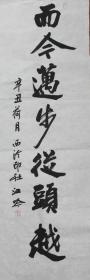 而今邁步從頭越
辛丑荷月西泠印社江吟